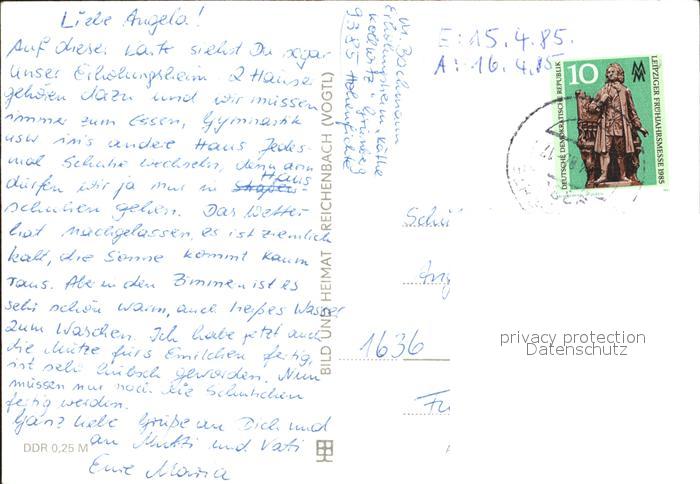 Liebe Angela!
Auf dieser Karte siehst Du sogar
unser Erholungsheim 2 Häuser
gehören dazu und wir müssen
immer zum Essen, Gymnastik
usw ins andere Haus Jedes-
mal Schuhe wechseln, denn drin
dürfen wir ja nur in Haus
schuhen gehen. Das Wetter
hat nachgelassen, es ist ziemlich
kalt, die Sonne kommt kaum
raus. Aber in den Zimmern ist es
sehr schön warm, auch heißes Wasser
zum Waschen. Ich habe jetzt auch
die Mütze fürs Emilchen fertig,
ist sehr hübsch geworden. Nun
müssen nur noch die Schühchen
fertig werden.
Ganz liebe Grüße an Dich und
an Mutti und Vati
Eure Maria
DDR 0,25 M
BILD UND HEIMAT REICHENBACH (VOGTL)
M. Bachmann
Erholungsheim Käthe
Kollwitz
9385
E: 15.4.85.
A: 16.4.85
10
DEUTSCHE DEMOKRATISCHE REPUBLIK
LEIPZIGER FRÜHJAHRSMESSE 1985
Schü
Ang
1636
privacy protection
Datenschutz